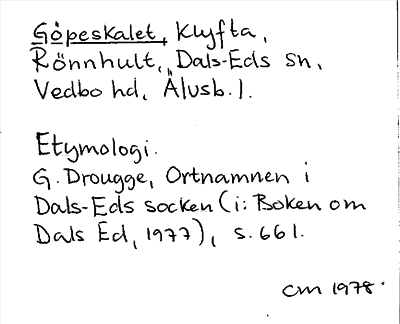 Göpeskalet, Klyfta,
Rönnhult, Dals-Eds sn,
Vedbo hd, Älvsb. l.
Etymologi.
G. Drougge, Ortnamnen i
Dals-Eds socken (i: Boken om
Dals Ed, 1977), s. 661.
CM 1978.